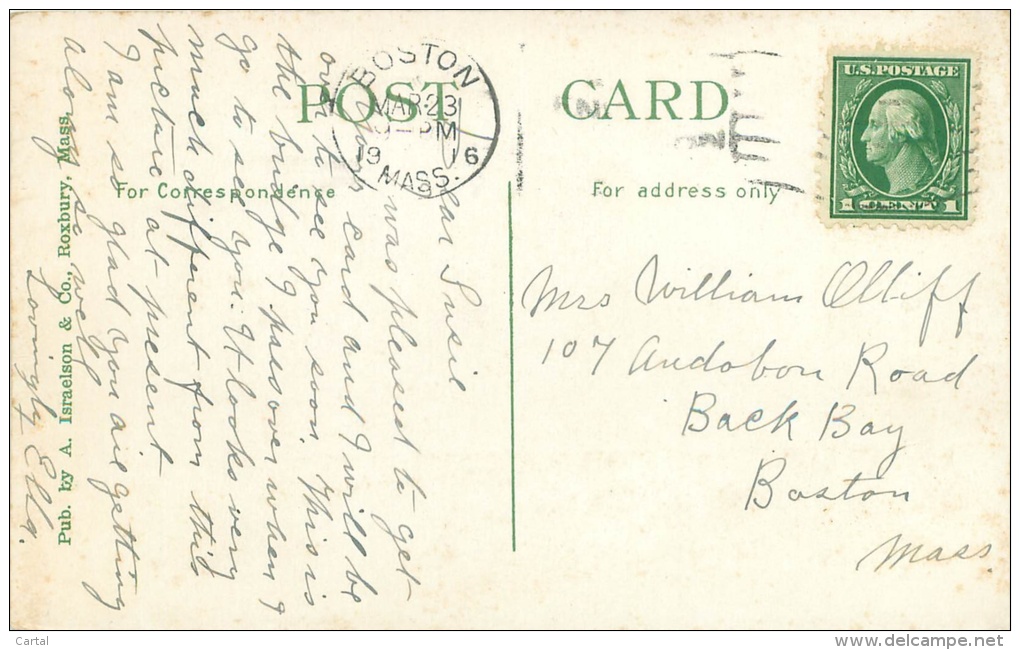 POST CARD
For Correspondence
For address only
BOSTON
MAR 23
PM
19 16
MASS.
U.S. POSTAGE
Dear Susie
I was pleased to get
your card and I will be
over to see you soon. This is
the bridge I pass over when I
go to see you. It looks very
much different from this
picture at present
I am so glad you are getting
along so well
Lovingly Ella.
Mrs William Olliff
107 Audobon Road
Back Bay
Boston
Mass
Pub. by A. Israelson & Co., Roxbury, Mass.
Cartal
delcampe.net